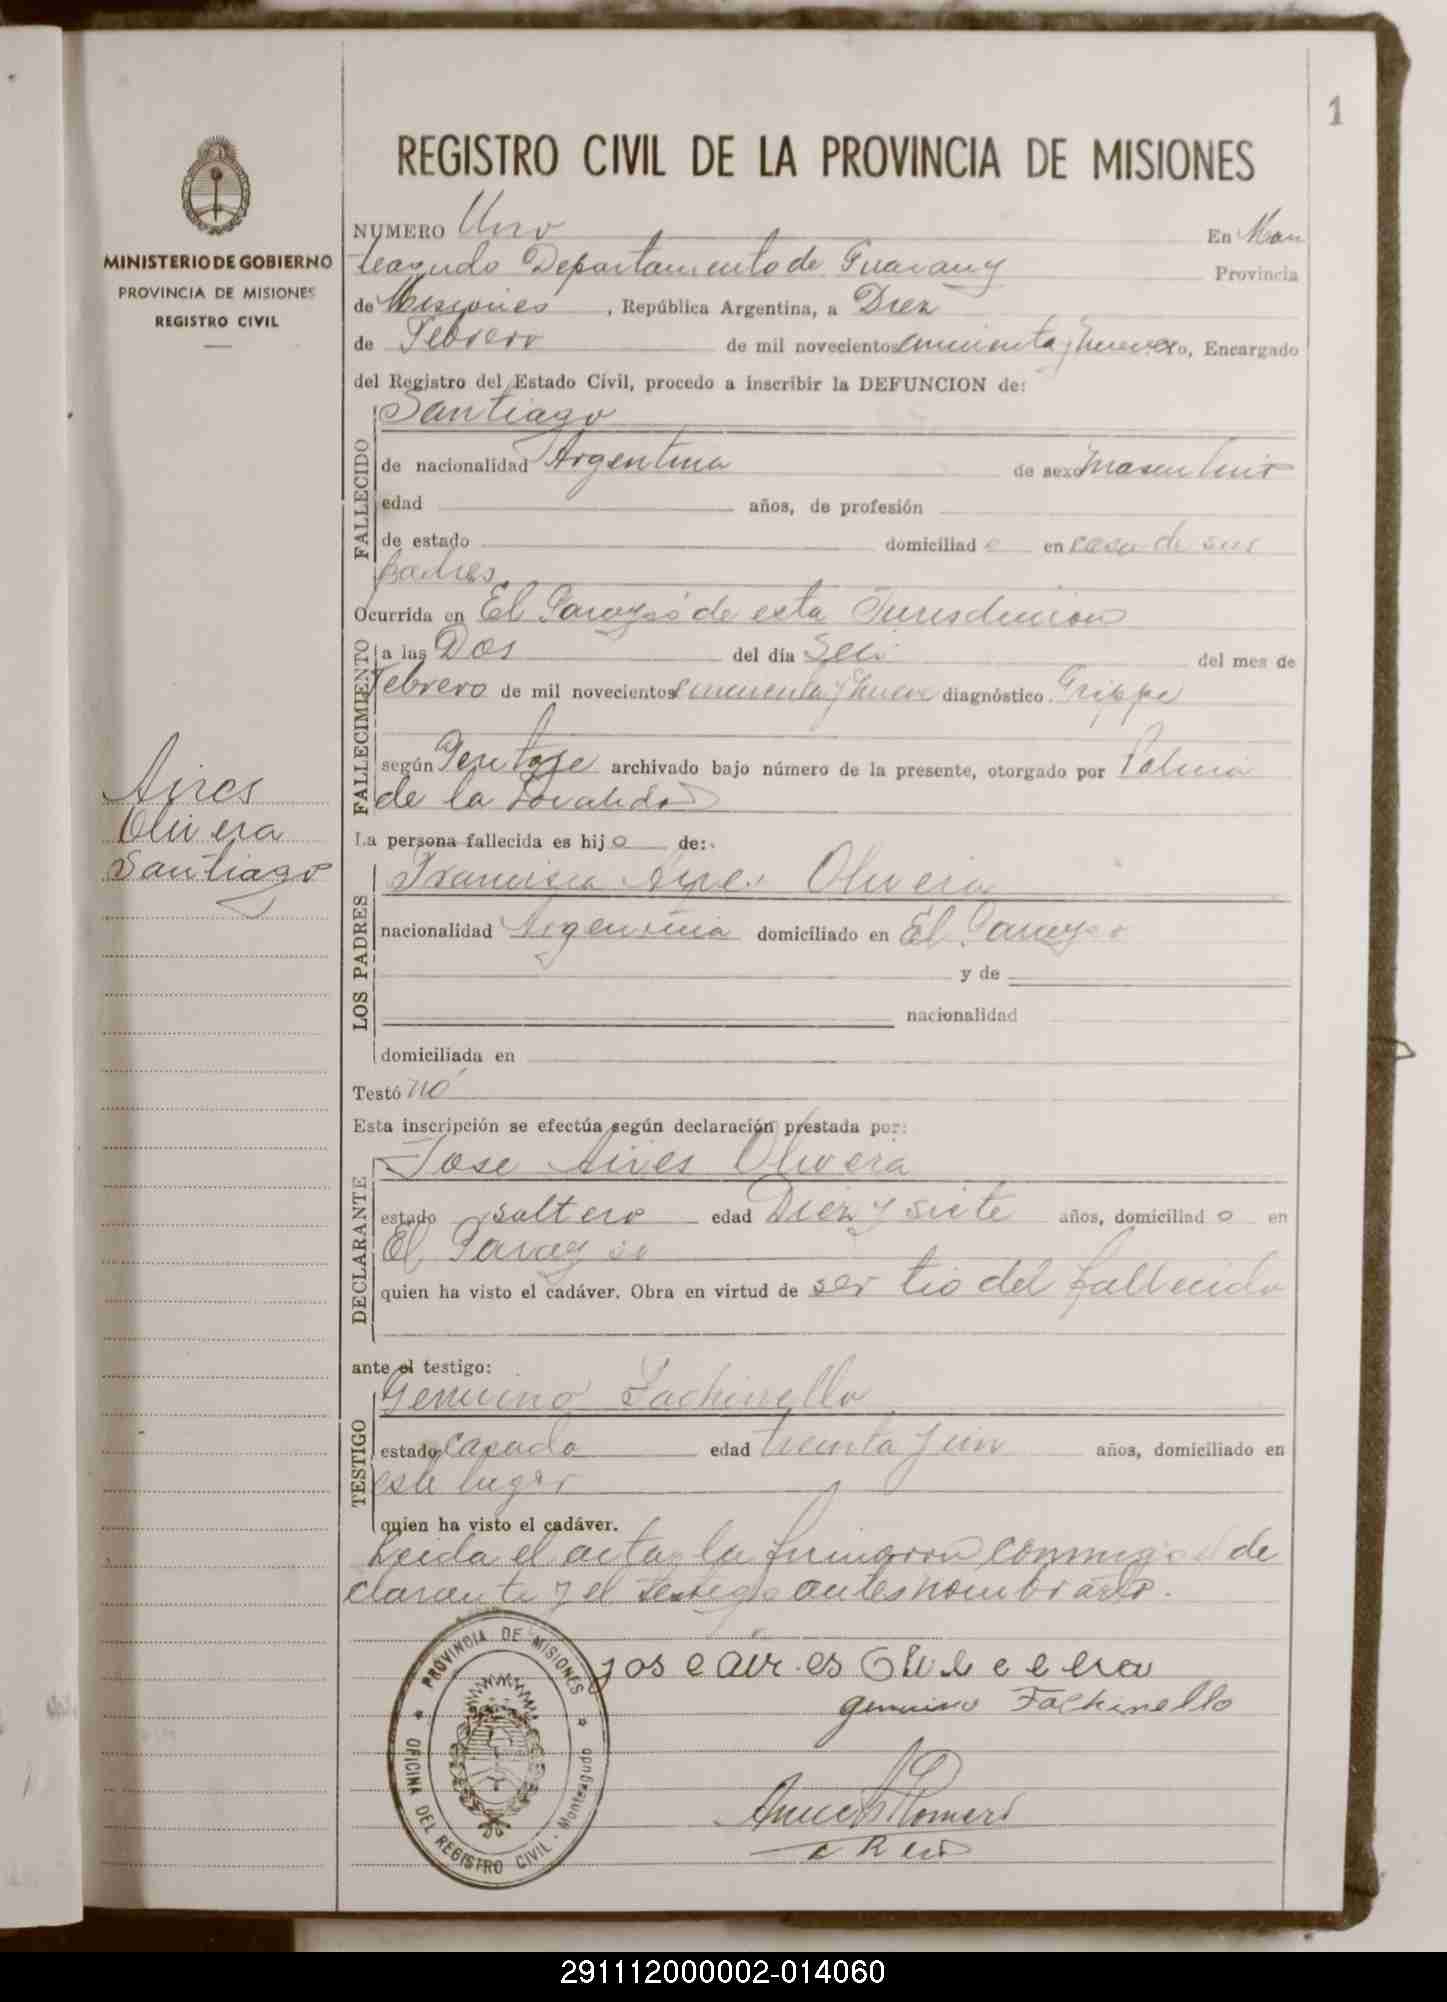 1
REGISTRO CIVIL DE LA PROVINCIA DE MISIONES
MINISTERIO DE GOBIERNO
PROVINCIA DE MISIONES
REGISTRO CIVIL
NUMERO Uno En Mon
teagudo Departamento de Guarany Provincia
de Misiones, República Argentina, a Diez
de Febrero de mil novecientos cincuenta y nueve, Encargado
del Registro del Estado Civil, procedo a inscribir la DEFUNCION de:
FALLECIDO
Santiago
de nacionalidad Argentina de sexo masculino
edad años, de profesión
de estado domiciliado en casa de sus
padres
Ocurrida en El Parayso de esta Jurisdiccion
FALLECIMIENTO
a las Dos del día Seis del mes de
Febrero de mil novecientos cincuenta y nueve diagnóstico Grippe
según archivado bajo número de la presente, otorgado por Policia
de la Localidad
Aires
Olivera
Santiago
La persona fallecida es hijo de:
LOS PADRES
Francisca Ayres Olivera
nacionalidad Argentina domiciliado en El Parayso
y de
nacionalidad
domiciliada en
Testó no
Esta inscripción se efectúa según declaración prestada por:
DECLARANTE
Jose Aires Olivera
estado soltero edad Diez y siete años, domiciliado en
El Parayso
quien ha visto el cadáver. Obra en virtud de ser tio del fallecido
ante el testigo:
TESTIGO
Genuino Fachinello
estado casado edad treinta y un años, domiciliado en
este lugar
quien ha visto el cadáver.
Leida el acta, la firmaron conmigo el de
clarante y el testigo antes nombrado.
PROVINCIA DE MISIONES
OFICINA DEL REGISTRO CIVIL - Monteagudo
jose aires
genuino Fachinello
291112000002-014060